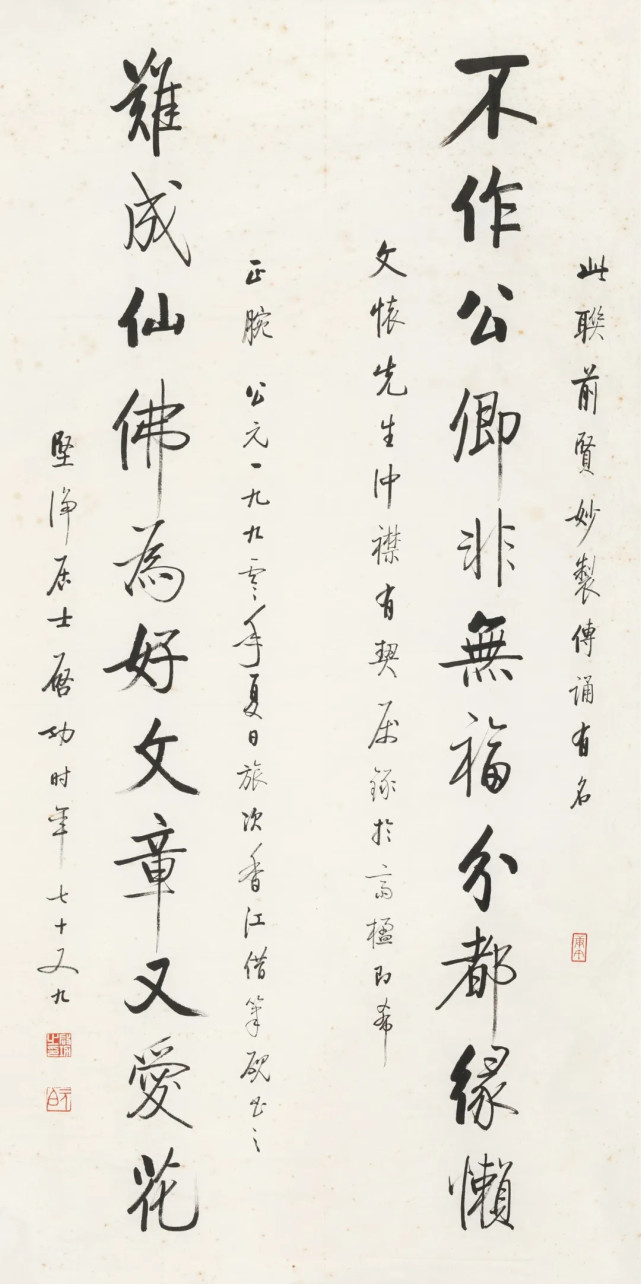 此聯前賢妙製傳誦有名
不作公卿非無福分都緣懶
文懷先生沖襟有契屬錄於高楹即希
正腕 公元一九九零年夏日旅次香江借筆硯書之
難成仙佛為好文章又愛花
堅淨居士启功时年七十又九